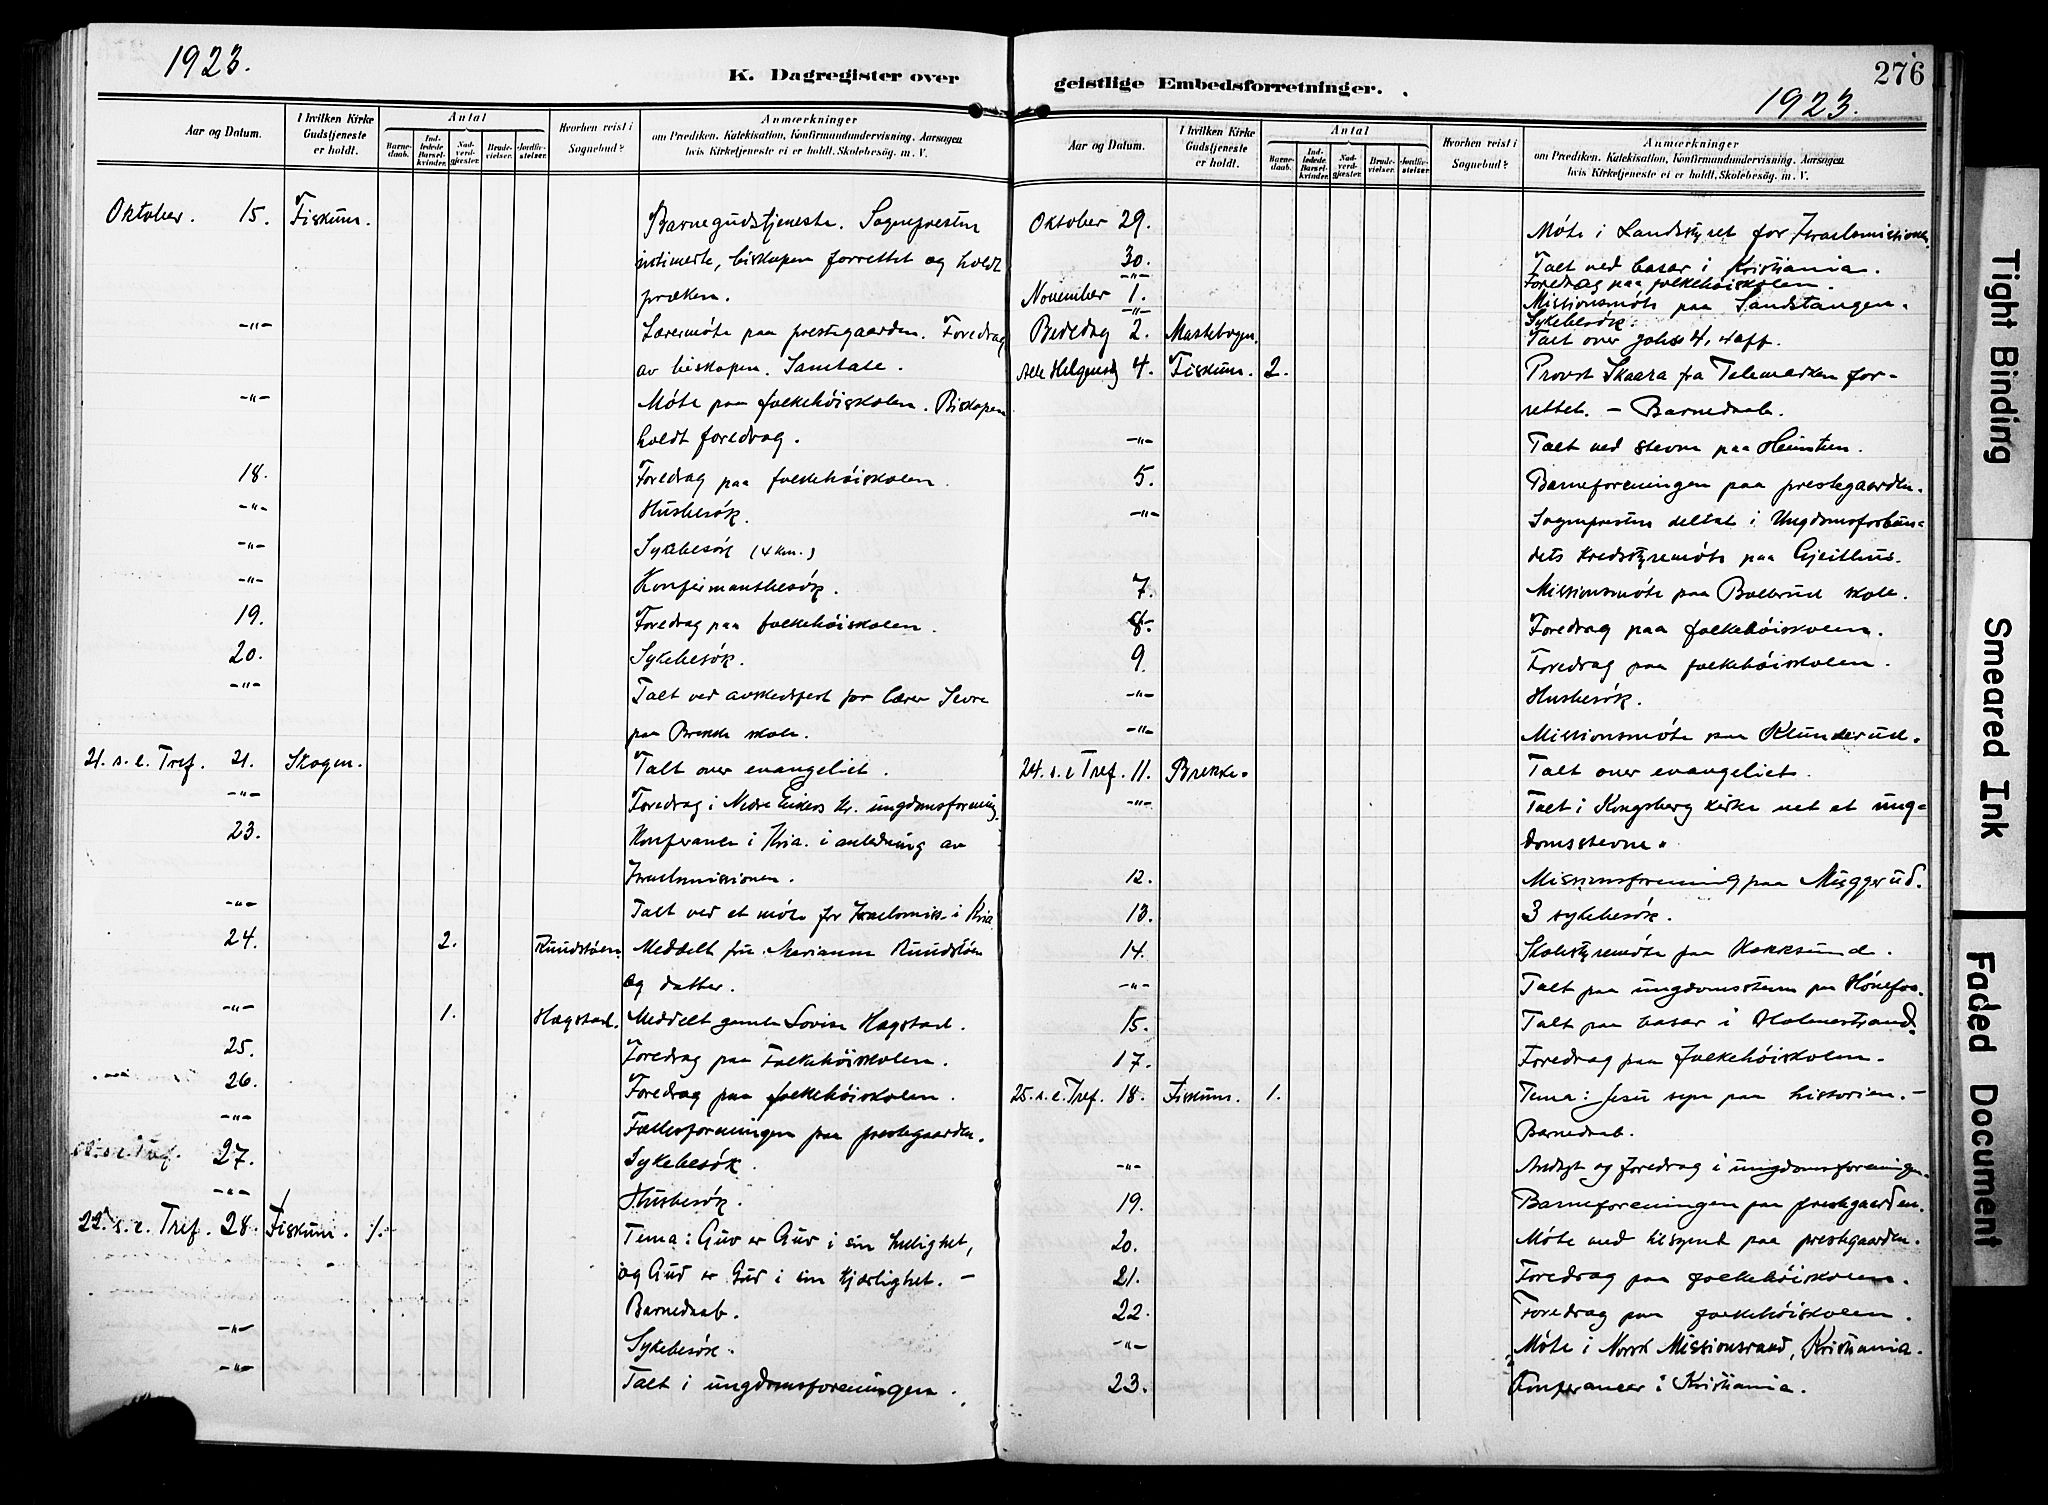 1923.
K. Dagregister over
Aar og Datum.
I hvilken Kirke Gudstjeneste er holdt.
Antal
Barnedaab.
Indledede Barselkvinder.
Nadverdgjester.
Brudevielser.
Jordfæstelser.
Hvorhen reist i Sognebud?
Anmærkninger
om Prædiken, Katekisation, Konfirmandundervisning, Aarsagen
hvis Kirketjeneste ei er holdt, Skolebesøg m. V.
Oktober. 15. Fiskum. Barnegudstjeneste. Sognepresten
intimerte, biskopen forrettet og holdt
præken.
-"- Lærermøte paa prestegaarden. Foredrag
av biskopen. Samtale.
-"- Møte paa folkehøiskolen. Biskopen
holdt foredrag.
18. Foredrag paa folkehøiskolen.
-"- Husbesøk.
-"- Sykebesøk (4 km.)
-"- Konfirmantbesøk.
19. Foredrag paa folkehøiskolen.
20. Sykebesøk.
-"- Talt ved avskedsfest for lærer
paa Brekke skole.
21. s. e. Tref. 21. Skogen. Talt over evangeliet.
-"- Foredrag i Nedre Eikers kr. ungdomsforening
23. Konferanse i Kria. i anledning av
Israelsmissionen.
-"- Talt ved et møte for Israelsmiss. i Kria
24. 2. Ruudstøen. Meddelt fru Marianne Ruudstøen
og datter.
-"- 1. Hagstad. Meddelt gamle Lovise Hagstad.
25. Foredrag paa Folkehøiskolen.
26. Foredrag paa folkehøiskolen.
-"- Fællesforeningen paa prestegaarden.
27. Sykebesøk.
-"- Husbesøk.
22. s. e. Tref. 28. Fiskum. 1. Tema: Gud er Gud i sin hellighet,
og Gud er Gud i sin kjærlighet. -
Barnedaab.
-"- Sykebesøk.
-"- Talt i ungdomsforeningen.
276
geistlige Embedsforretninger.
1923.
Aar og Datum.
I hvilken Kirke Gudstjeneste er holdt.
Antal
Barnedaab.
Indledede Barselkvinder.
Nadverdgjester.
Brudevielser.
Jordfæstelser.
Hvorhen reist i Sognebud?
Anmærkninger
om Prædiken, Katekisation, Konfirmandundervisning, Aarsagen
hvis Kirketjeneste ei er holdt, Skolebesøg m. V.
Oktober 29. Møte i Landstyret for Israelsmissionen
30. Talt ved basar i Kristiania.
-"- Foredrag paa folkehøiskolen.
November 1. Missionsmøte paa Sandstangen.
-"- Sykebesøk.
Bededag 2. Talt over Johs 4,
Alle Helgensdg 4. Fiskum. 2. Provst Skaara fra Telemarken for-
rettet. - Barnedaab.
-"- Talt ved stevne paa
5. Barneforeningen paa prestegaarden.
-"- Sognepresten deltat i Ungdomsforbun-
dets kredsstyremøte paa Gjeithus.
7. Missionsmøte paa Bollerud skole.
8. Foredrag paa folkehøiskolen.
9. Foredrag paa folkehøiskolen.
-"- Husbesøk.
-"- Missionsmøte paa Klunderud.
24. s. e Tref. 11. Brekke. Talt over evangeliet.
-"- Talt i Kongsberg kirke ved et ung-
domsstevne.
12. Missionsforening paa Muggerud.
13. 3 sykebesøk.
14. Skolestyremøte paa Hokksund.
-"- Talt paa ungdomsstevne paa Hønefos.
15. Talt paa basar i Holmestrand.
17. Foredrag paa folkehøiskolen.
25. s. e. Tref. 18. Fiskum. 1. Tema: Jesu syn paa historien. -
Barnedaab.
-"- Andagt og foredrag i ungdomsforeningen.
19. Barneforeningen paa prestegaarden.
20. Møte med tilsynet paa prestegaarden.
21. Foredrag paa folkehøiskolen.
22. Foredrag paa folkehøiskolen.
-"- Møte i Norsk Missionsraad, Kristiania.
23. Konferanser i Kristiania.
Tight Binding
Smeared Ink
Faded Document